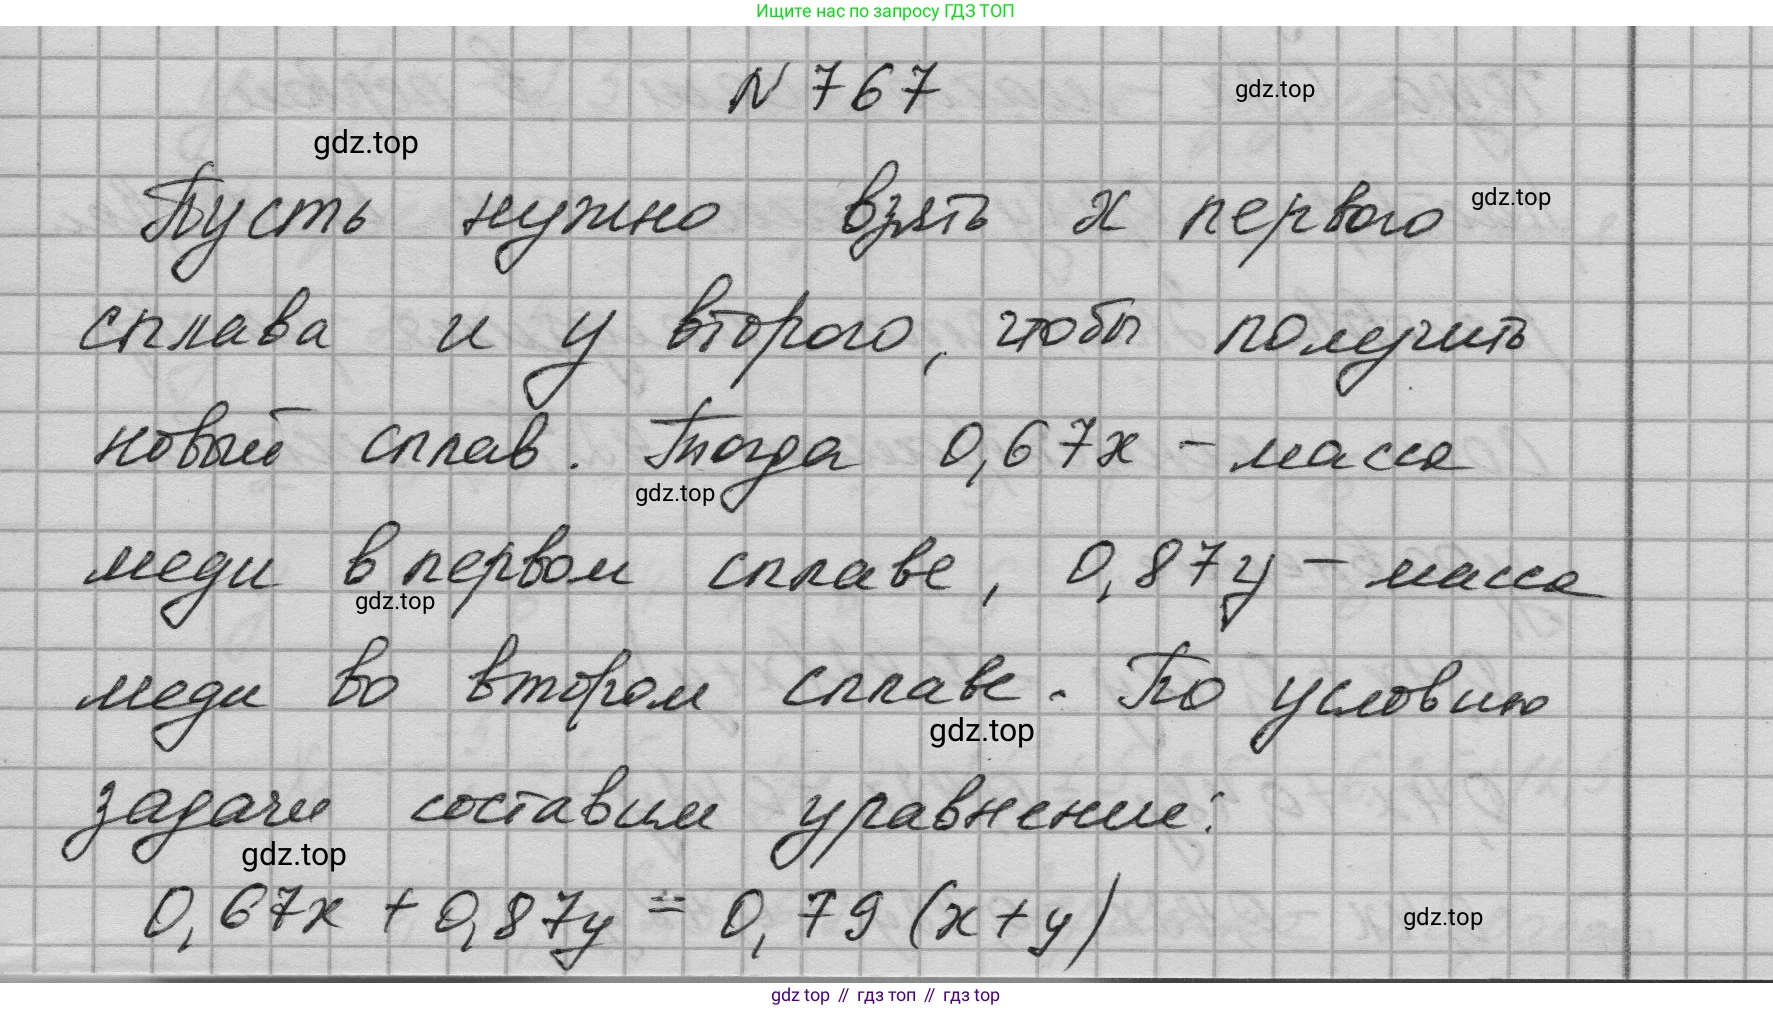 Ищите нас по запросу ГДЗ ТОП
N 767
gdz.top
gdz.top
Пусть нужно взять x первого
gdz.top
сплава и y второго, чтобы получить
новый сплав. Тогда 0,67x - масса
gdz.top
меди в первом сплаве, 0,87y - масса
gdz.top
меди во втором сплаве. По условию
gdz.top
задачи составим уравнение:
gdz.top
0,67x + 0,87y = 0,79 (x+y)
gdz.top
gdz top // гдз топ // gdz top